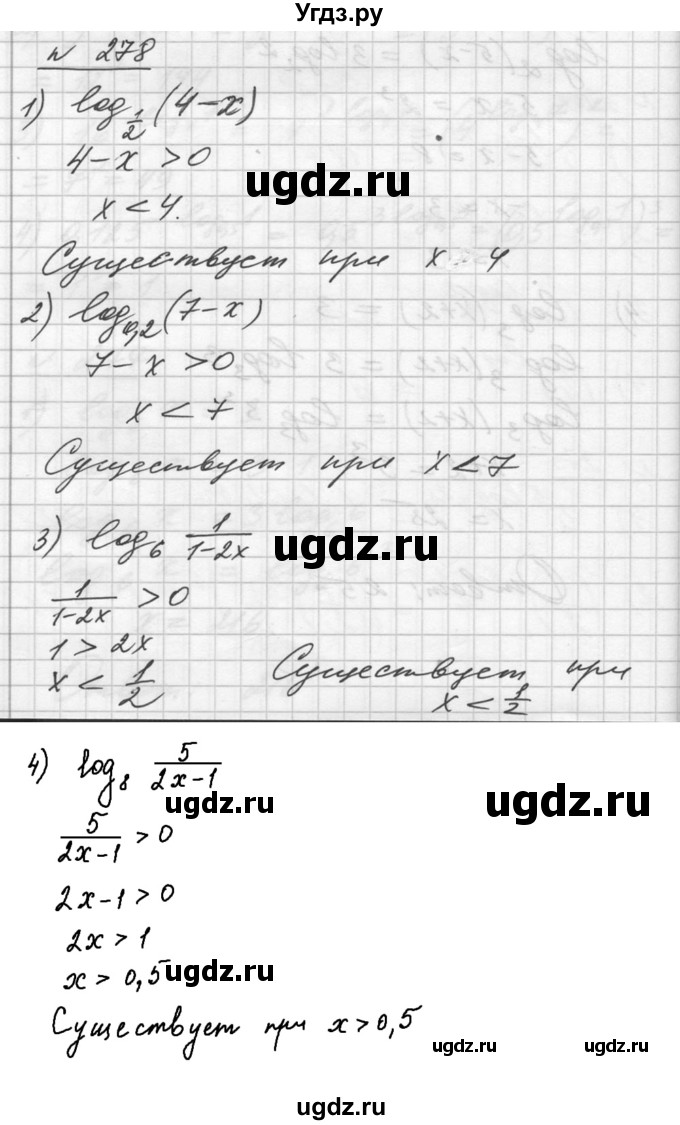 Угдз.ру
n 278
1) log_{1/2}(4-x)
4-x>0
x<4.
ugdz.ru
Существует при x 4
2) log_{0,2}(7-x)
7-x>0
x<7
Существует при x<7
3) log_6 1/(1-2x)
ugdz.ru
1/(1-2x) > 0
1>2x
x < 1/2
Существует при
x < 1/2
4) log_8 5/(2x-1)
ugdz.ru
ugdz.ru
5/(2x-1) > 0
2x-1>0
2x>1
x>0,5
ugdz.ru
Существует при x>0,5
ugdz.ru
ugdz.ru
ugdz.ru